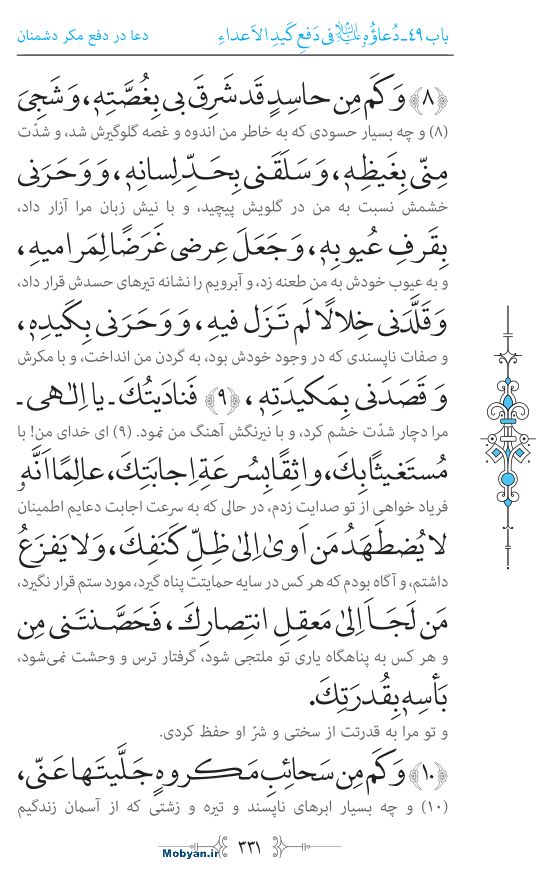 باب ۴۹ـ دُعاؤُهُ علیه‌السلام فی دَفعِ کَیدِ الاَعداءِ
دعا در دفع مکر دشمنان
﴿۸﴾ وَ کَم مِن حاسِدٍ قَد شَرِقَ بی بِغُصَّتِهِ، وَ شَجِیَ
(۸) و چه بسیار حسودی که به خاطر من اندوه و غصه گلوگیرش شد، و شدّت
مِنّی بِغَیظِهِ، وَ سَلَقَنی بِحَدِّ لِسانِهِ، وَ وَحَرَنی
خشمش نسبت به من در گلویش پیچید، و با نیش زبان مرا آزار داد،
بِقَرفِ عُیوبِهِ، وَ جَعَلَ عِرضی غَرَضًا لِمَرامیهِ،
و به عیوب خودش به من طعنه زد، و آبرویم را نشانه تیرهای حسدش قرار داد،
وَ قَلَّدَنی خِلالًا لَم تَزَل فیهِ، وَ وَحَرَنی بِکَیدِهِ،
و صفات ناپسندی که در وجود خودش بود، به گردن من انداخت، و با مکرش
وَ قَصَدَنی بِمَکیدَتِهِ، ﴿۹﴾ فَنادَیتُکَ ـ یا اِلٰهی ـ
مرا دچار شدّت خشم کرد، و با نیرنگش آهنگ من نمود. (۹) ای خدای من! با
مُستَغیثًا بِکَ، واثِقًا بِسُرعَةِ اِجابَتِکَ، عالِمًا اَنَّهُ
فریاد خواهی از تو صدایت زدم، در حالی که به سرعت اجابت دعایم اطمینان
لا یُضطَهَدُ مَن اَویٰ اِلیٰ ظِلِّ کَنَفِکَ، وَ لا یَفزَعُ
داشتم، و آگاه بودم که هر کس در سایه حمایتت پناه گیرد، مورد ستم قرار نگیرد،
مَن لَجَاَ اِلیٰ مَعقِلِ انتِصارِکَ، فَحَصَّنتَنی مِن
و هر کس به پناهگاه یاری تو ملتجی شود، گرفتار ترس و وحشت نمی‌شود،
بَأسِهِ بِقُدرَتِکَ.
و تو مرا به قدرتت از سختی و شرّ او حفظ کردی.
﴿۱۰﴾ وَ کَم مِن سَحائِبِ مَکروهٍ جَلَّیتَها عَنّی،
(۱۰) و چه بسیار ابرهای ناپسند و تیره و زشتی که از آسمان زندگیم
۳۳۱
Mobyan.ir